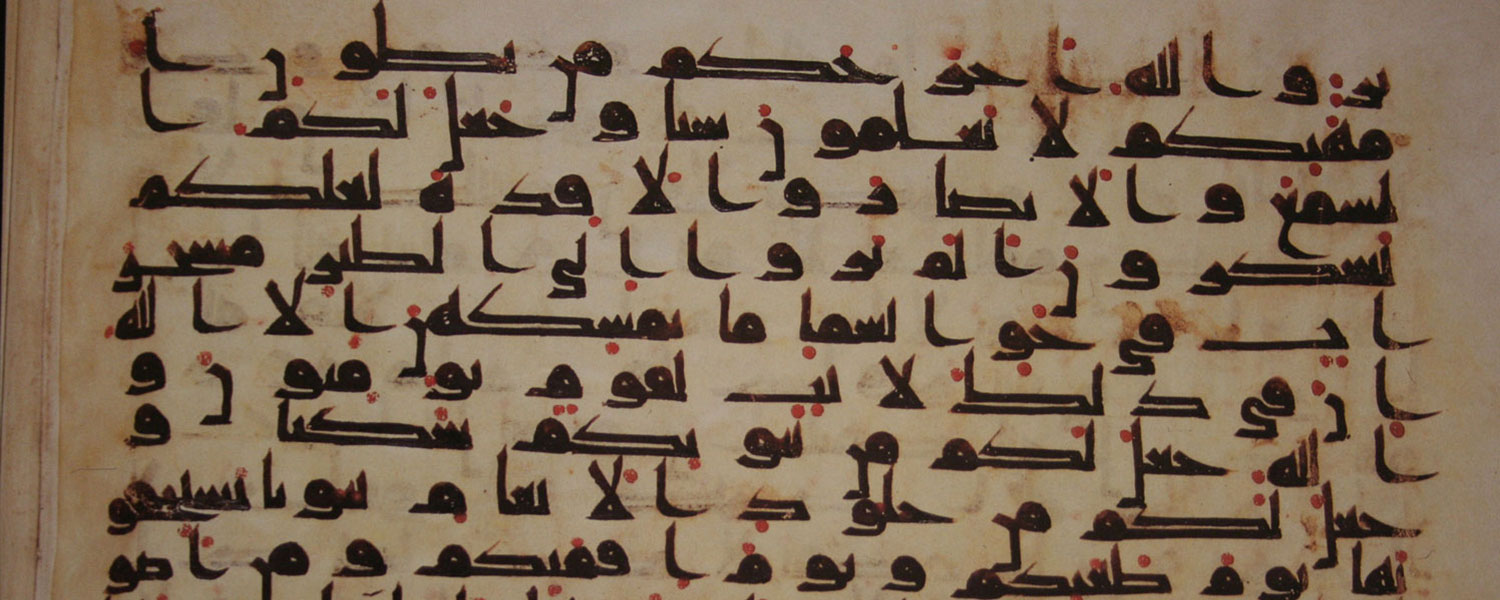 ير والله اخرجكم من بطون ا
مهتكم لا تعلمون شيا وجعل لكم ا
لسمع والابصار والافدة لعلكم
تشكرون الم يروا الى الطير مسخر
ات في جو السما ما يمسكهن الا الله
ان في ذلك لايت لقوم يومنون و
الله جعل لكم من بيوتكم سكنا و
جعل لكم من جلود الانعام بيوتا تستخفو
نها يوم ظعنكم ويوم اقمتكم ومن اصو